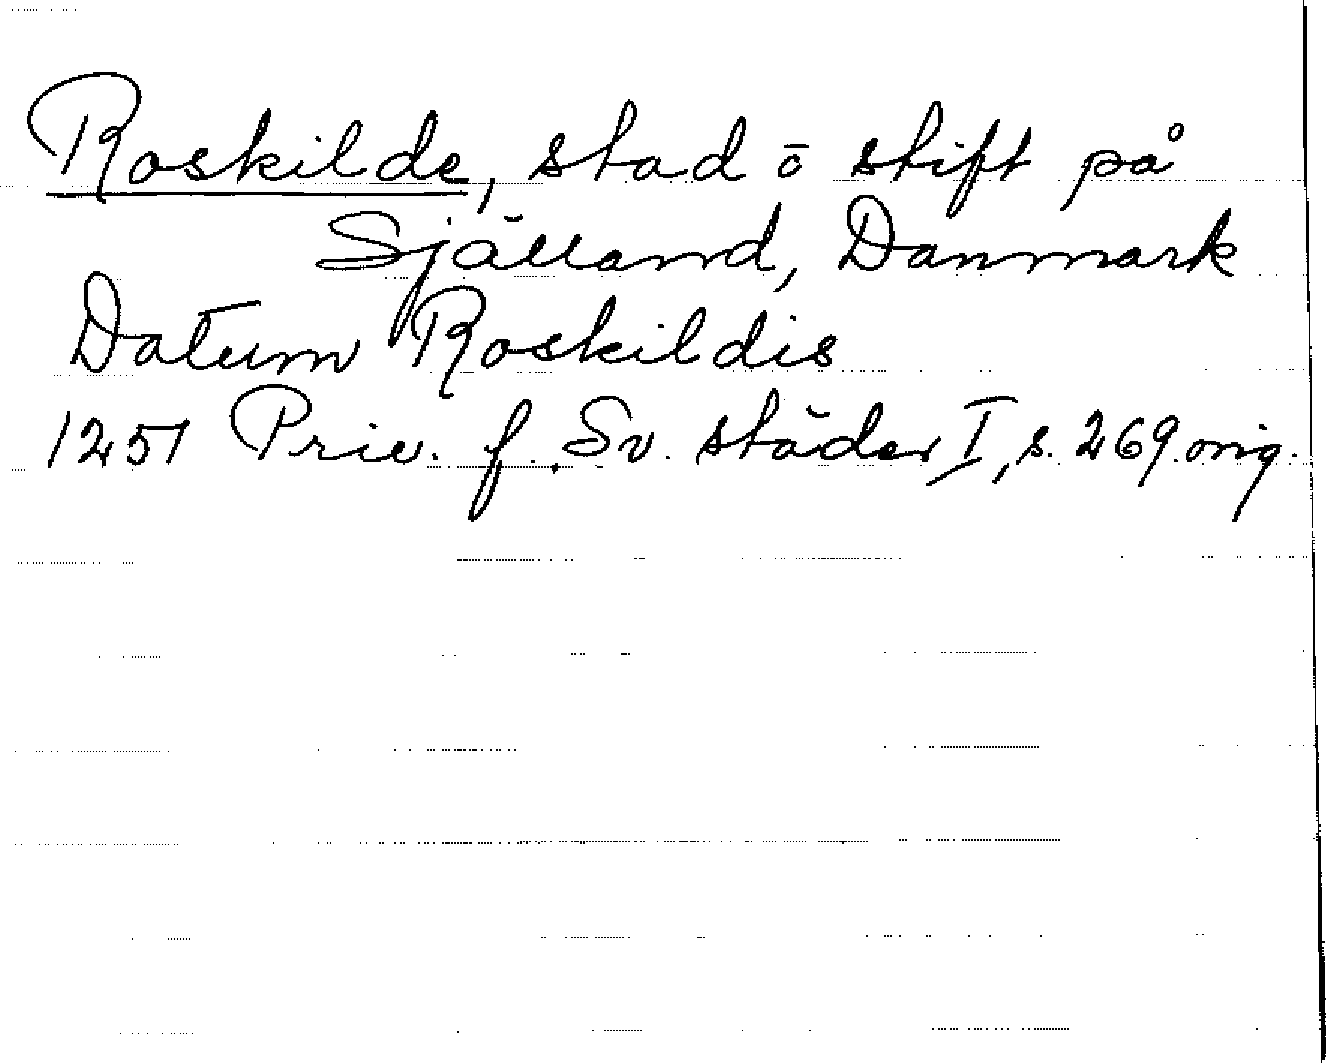 Roskilde, stad ō stift på
Själland, Danmark
Datum Roskildis
1257 Priv. f. Sv. städer I, s. 269 orig.